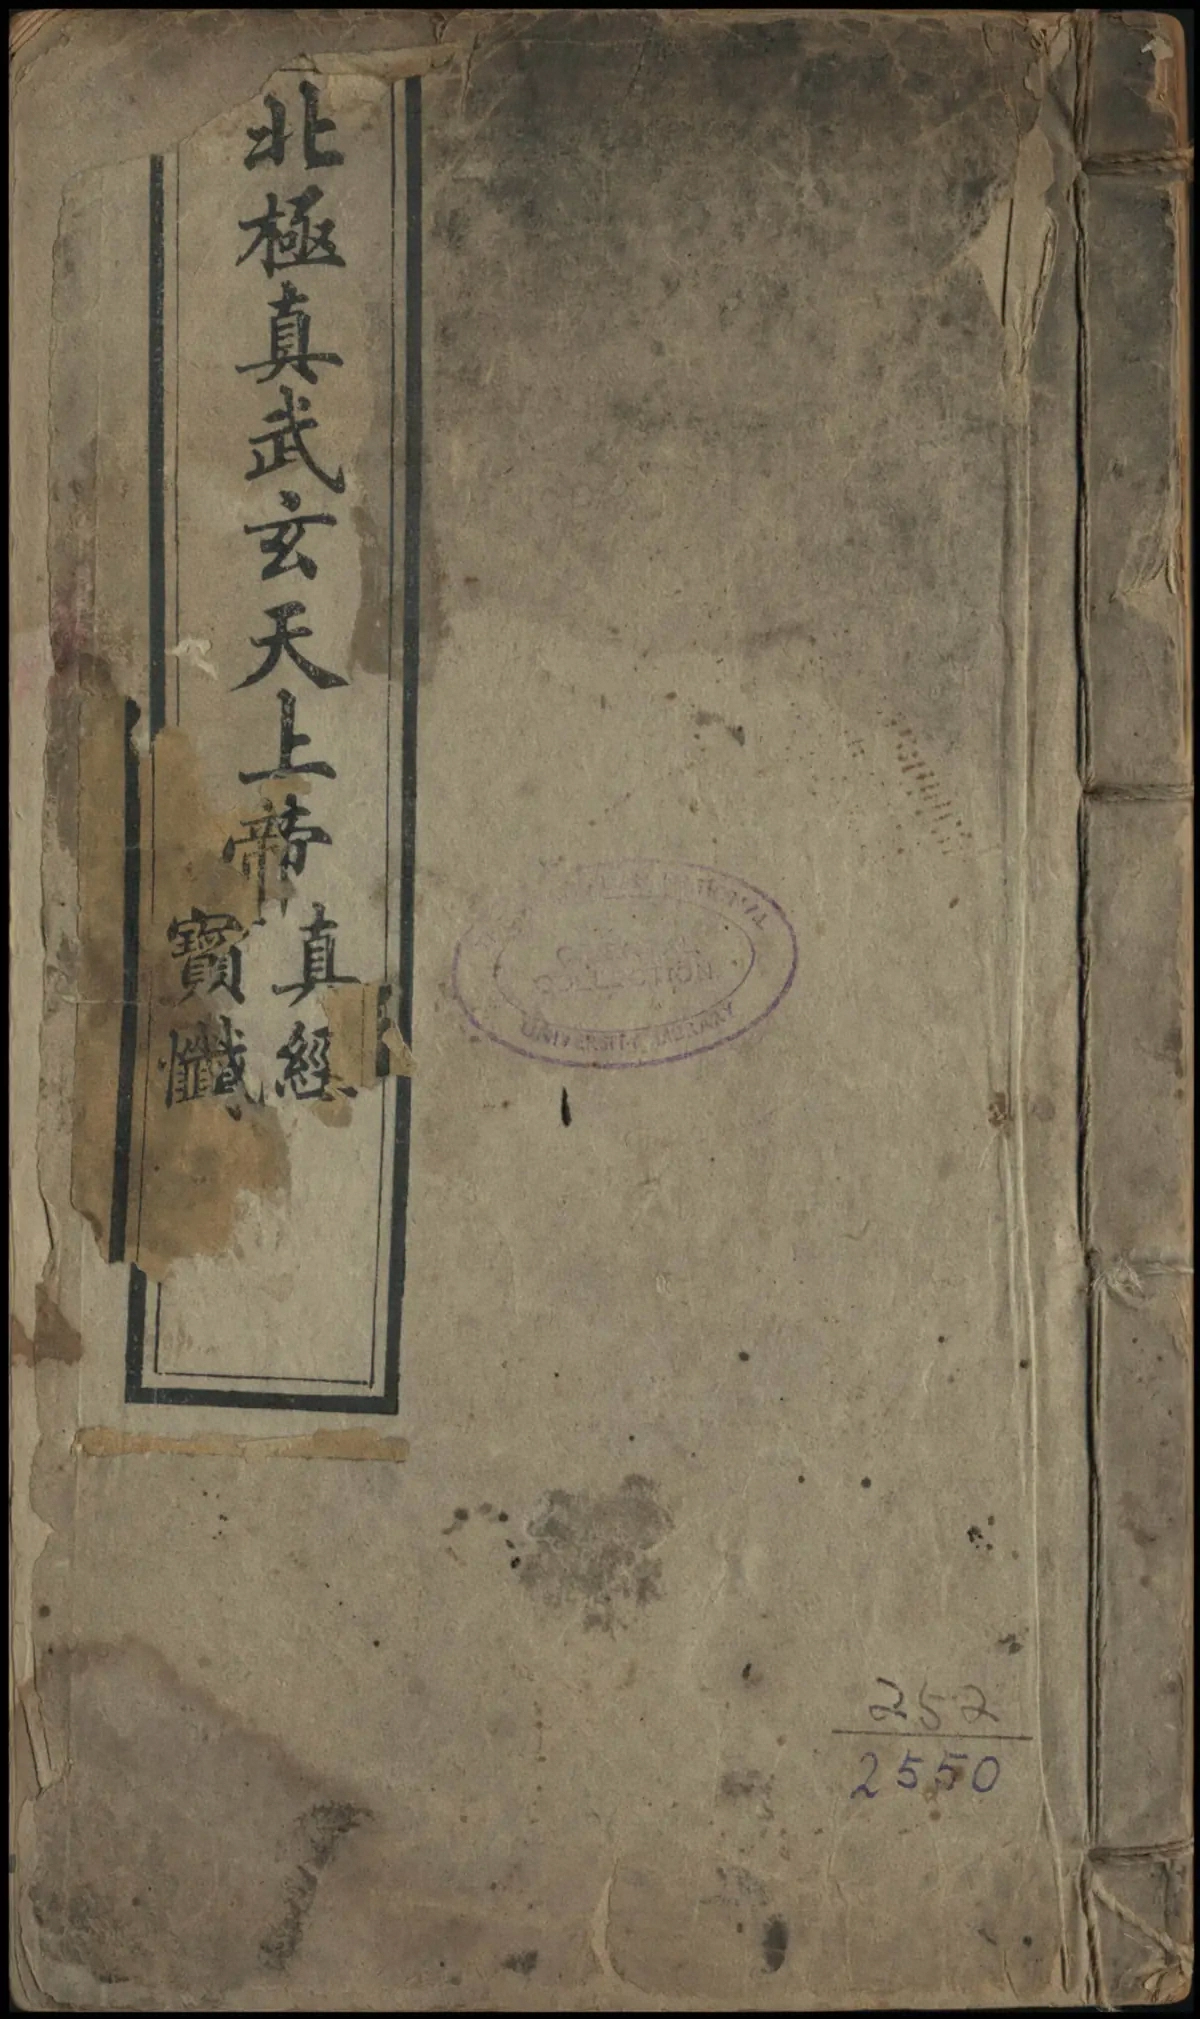 北極真武玄天上帝
真經
寶懺
NATIONAL
UNIVERSITY LIBRARY
252
2550